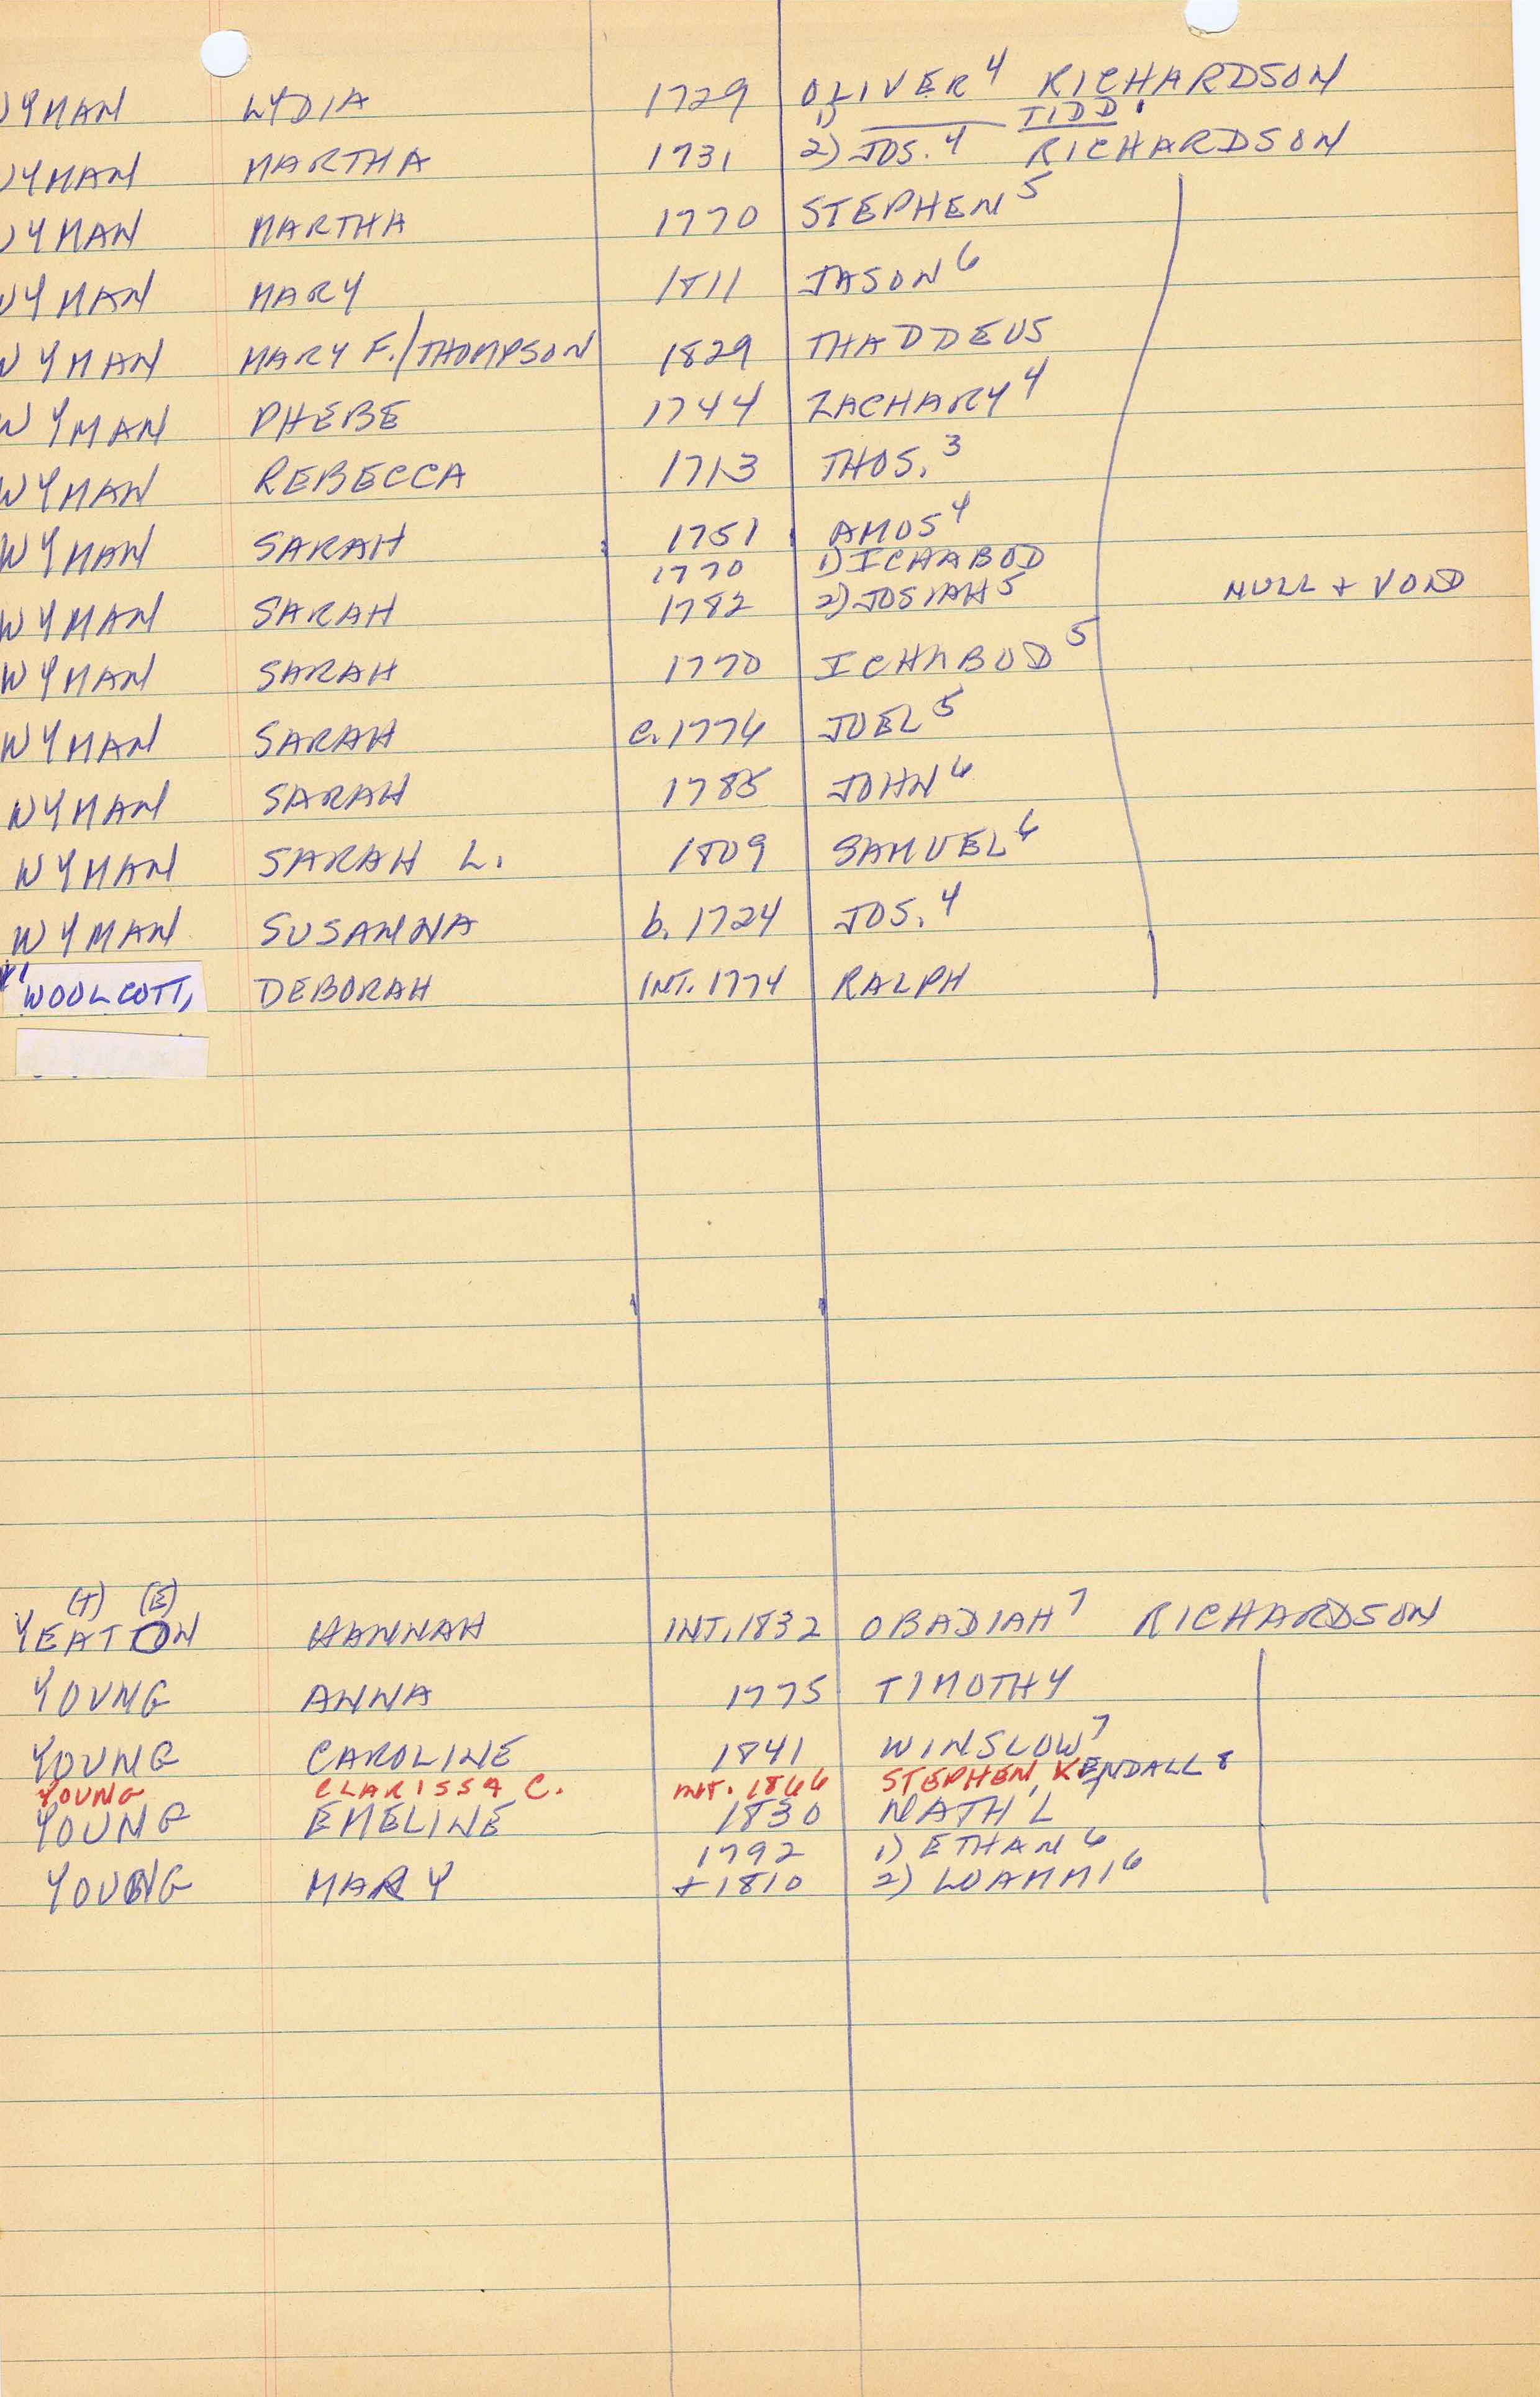 WYMAN LYDIA 1729 OLIVER⁴ RICHARDSON
1) ____ TIDD
WYMAN MARTHA 1731 2) JOS.⁴ RICHARDSON
WYMAN MARTHA 1770 STEPHEN⁵
WYMAN MARY 1811 JASON⁶
WYMAN MARY F./THOMPSON 1829 THADDEUS
WYMAN PHEBE 1744 ZACHARY⁴
WYMAN REBECCA 1713 THOS.³
WYMAN SARAH 1751 AMOS⁴
1770 1) ICHABOD
WYMAN SARAH 1782 2) JOSIAH⁵ NULL + VOID
WYMAN SARAH 1770 ICHABOD⁵
WYMAN SARAH c. 1776 JOEL⁵
WYMAN SARAH 1785 JOHN⁶
WYMAN SARAH L. 1809 SAMUEL⁶
WYMAN SUSANNA b. 1724 JOS.⁴
WOOLCOTT, DEBORAH INT. 1774 RALPH
(T) (E)
YEATON HANNAH INT. 1832 OBADIAH⁷ RICHARDSON
YOUNG ANNA 1775 TIMOTHY
YOUNG CAROLINE 1841 WINSLOW⁷
YOUNG CLARISSA C. INT. 1866 STEPHEN KENDALL⁸
YOUNG EMELINE 1830 NATH'L
1792 1) ETHAN⁶
YOUNG MARY + 1810 2) LOAMMI⁶